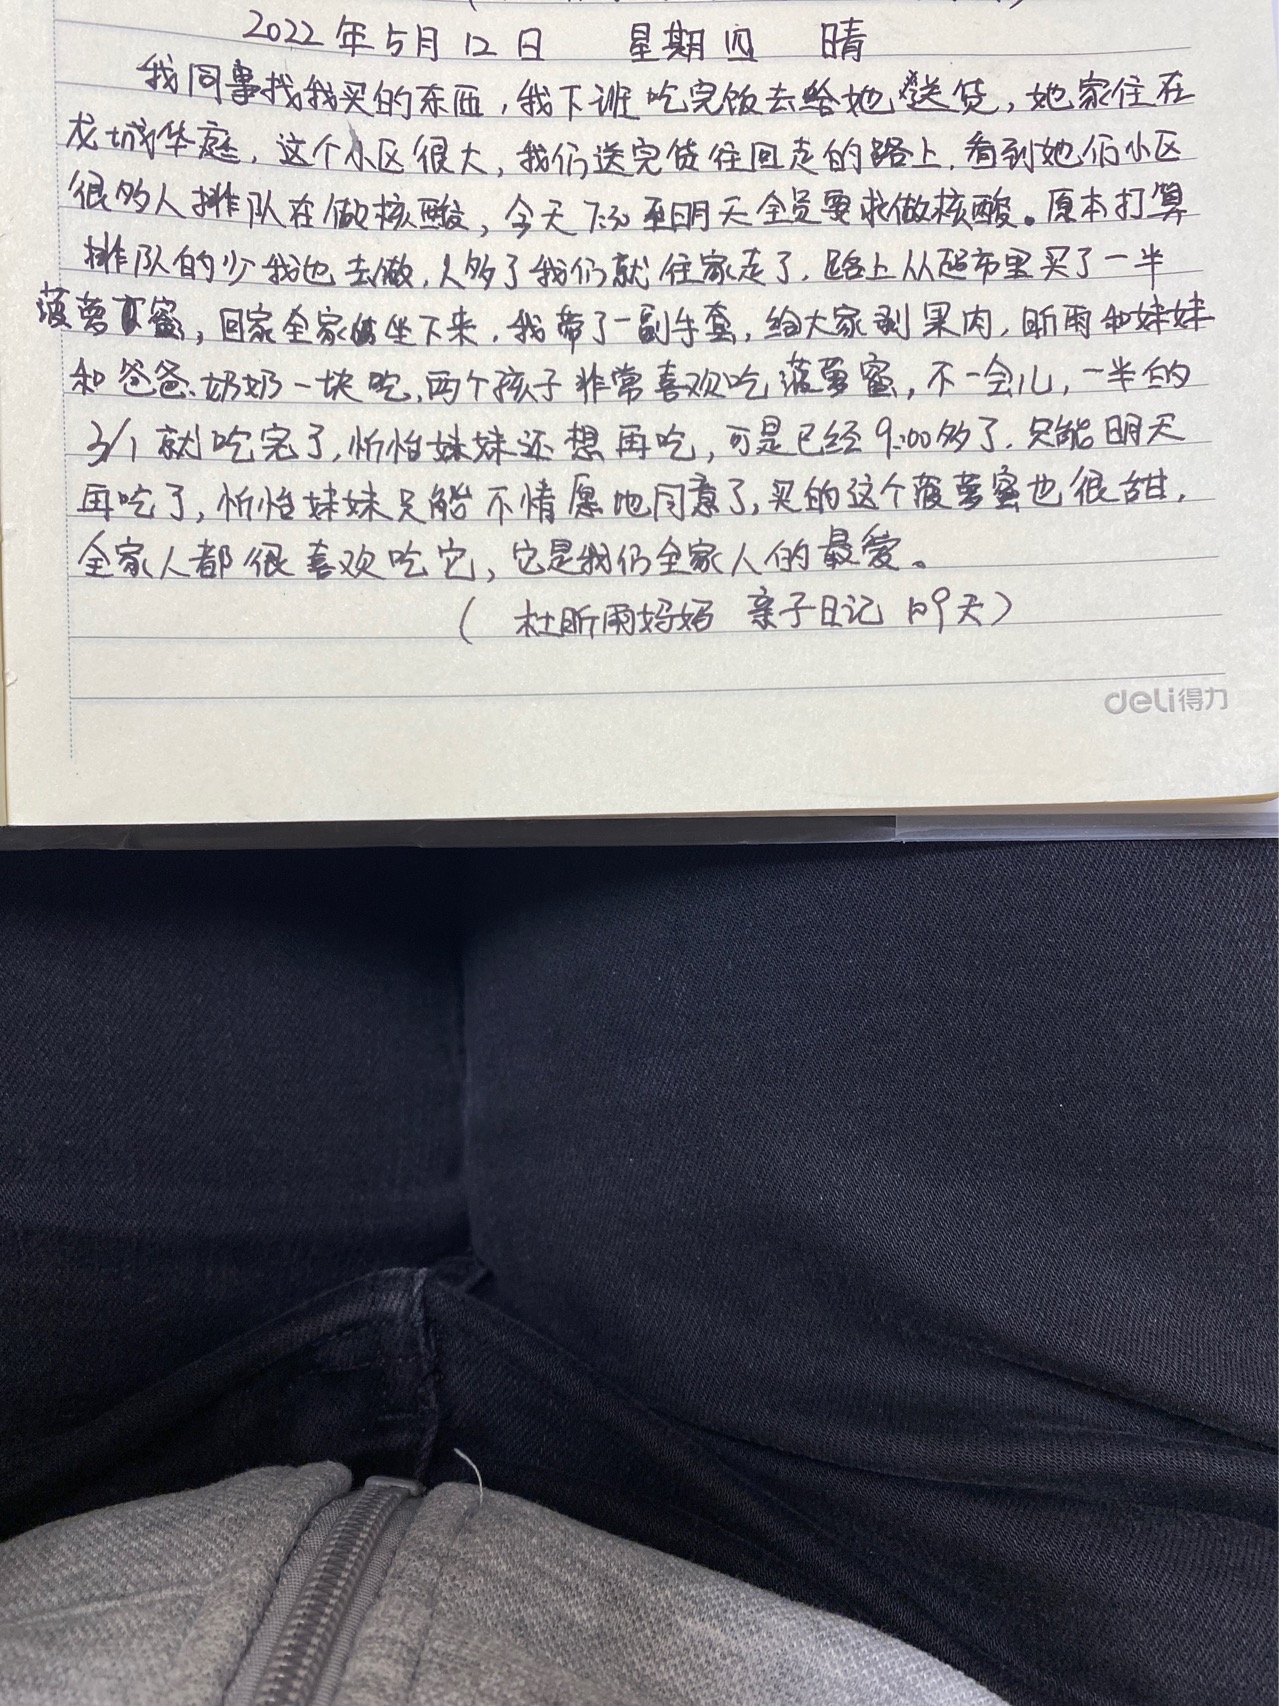 2022年5月12日 星期四 晴
我同事找我买的东西，我下班吃完饭去给她送货，她家住在
龙城华庭，这个小区很大，我们送完货往回走的路上，看到她们小区
很多人排队在做核酸，今天7:30至明天全员要求做核酸。原本打算
排队的少我也去做，人多了我们就往家走了，路上从超市里买了一半
菠萝蜜，回家全家坐下来，我带了一副手套，给大家剥果肉，昕雨和妹妹
和爸爸、奶奶一块吃，两个孩子非常喜欢吃菠萝蜜，不一会儿，一半的
3/1就吃完了，忻怡妹妹还想再吃，可是已经9:00多了，只能明天
再吃了，忻怡妹妹只能不情愿地同意了，买的这个菠萝蜜也很甜，
全家人都很喜欢吃它，它是我们全家人的最爱。
（杜昕雨妈妈 亲子日记 9天）
deli得力